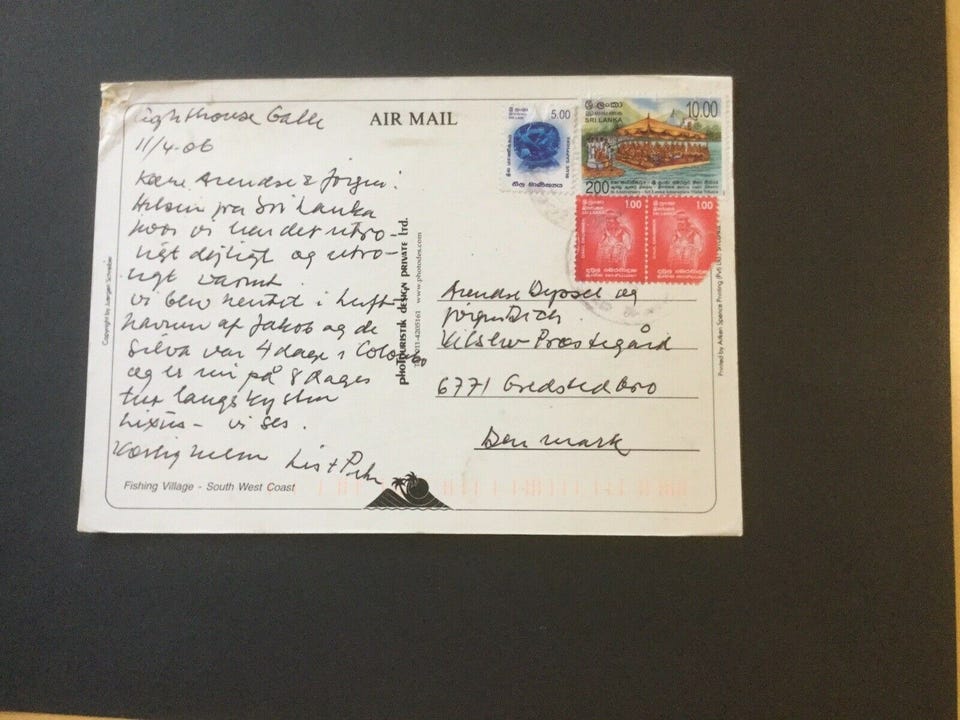 Lighthouse Galle
11/4-06
Kære Arendse & Jørgen!
Hilsen fra Sri Lanka
hvor vi har det utro-
ligt dejligt og utro-
ligt varmt.
Vi blev hentet i luft-
havnen af Jakob og de
Silva var 4 dage i Colombo
og er nu på 8 dages
tur langs kysten
Luxus - vi ses.
Kærlig hilsen
AIR MAIL
Fishing Village - South West Coast
Copyright by Juergen Schreiber
photouristik design private ltd.
www.photodes.com
Printed by Aitken Spence Printing (Pvt) Ltd.
ශ්‍රී ලංකා
5.00
SRI LANKA
BLUE SAPPHIRE
නිල් මාණික්‍යය
ශ්‍රී ලංකා
10.00
SRI LANKA
200
ශ්‍රී ලංකා
1.00
SRI LANKA
ශ්‍රී ලංකා
1.00
SRI LANKA
Arendse og
Jørgen
Vilslev Præstegård
6771 Gredstedbro
Denmark